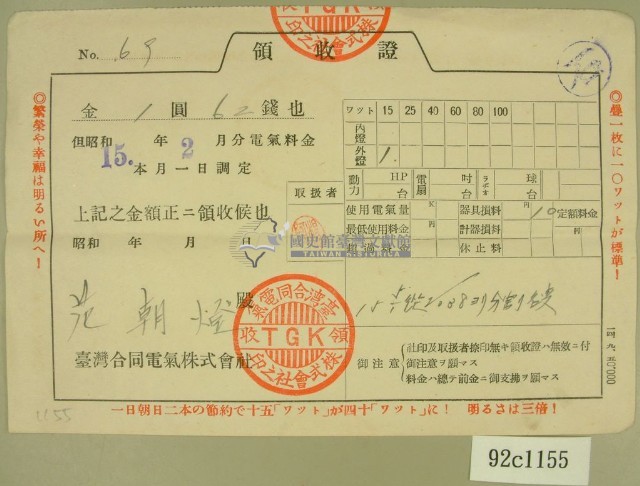 No. 69
領收證
金 1 圓 62 錢也
但昭和 15. 年 2 月分電氣料金
本月一日調定
上記之金額正ニ領收候也
昭和 年 月 日
朝燈 殿
臺灣合同電氣株式會社
取扱者
ワット 15 25 40 60 80 100
內燈
外燈 1
動力 HP 台
電扇 吋 台
ラヂオ 球 台
使用電氣量 K
器具損料 円 10
定額料金 円
最低使用料金
計器損料
超過料金
休止料
御注意
社印及取扱者捺印無キ領收證ハ無效ニ付
御注意ヲ願マス
料金ハ總テ前金ニ御支拂ヲ願マス
臺灣合同電氣
領 TGK 收
株式會社之印
TGK
株式會社之印
國史館臺灣文獻館
TAIWAN HISTORICA
◎繁榮や幸福は明るい所へ！
◎疊一枚に一〇ワットが標準！
一日朝日二本の節約で十五「ワット」が四十「ワット」に！ 明るさは三倍！
1155
92c1155